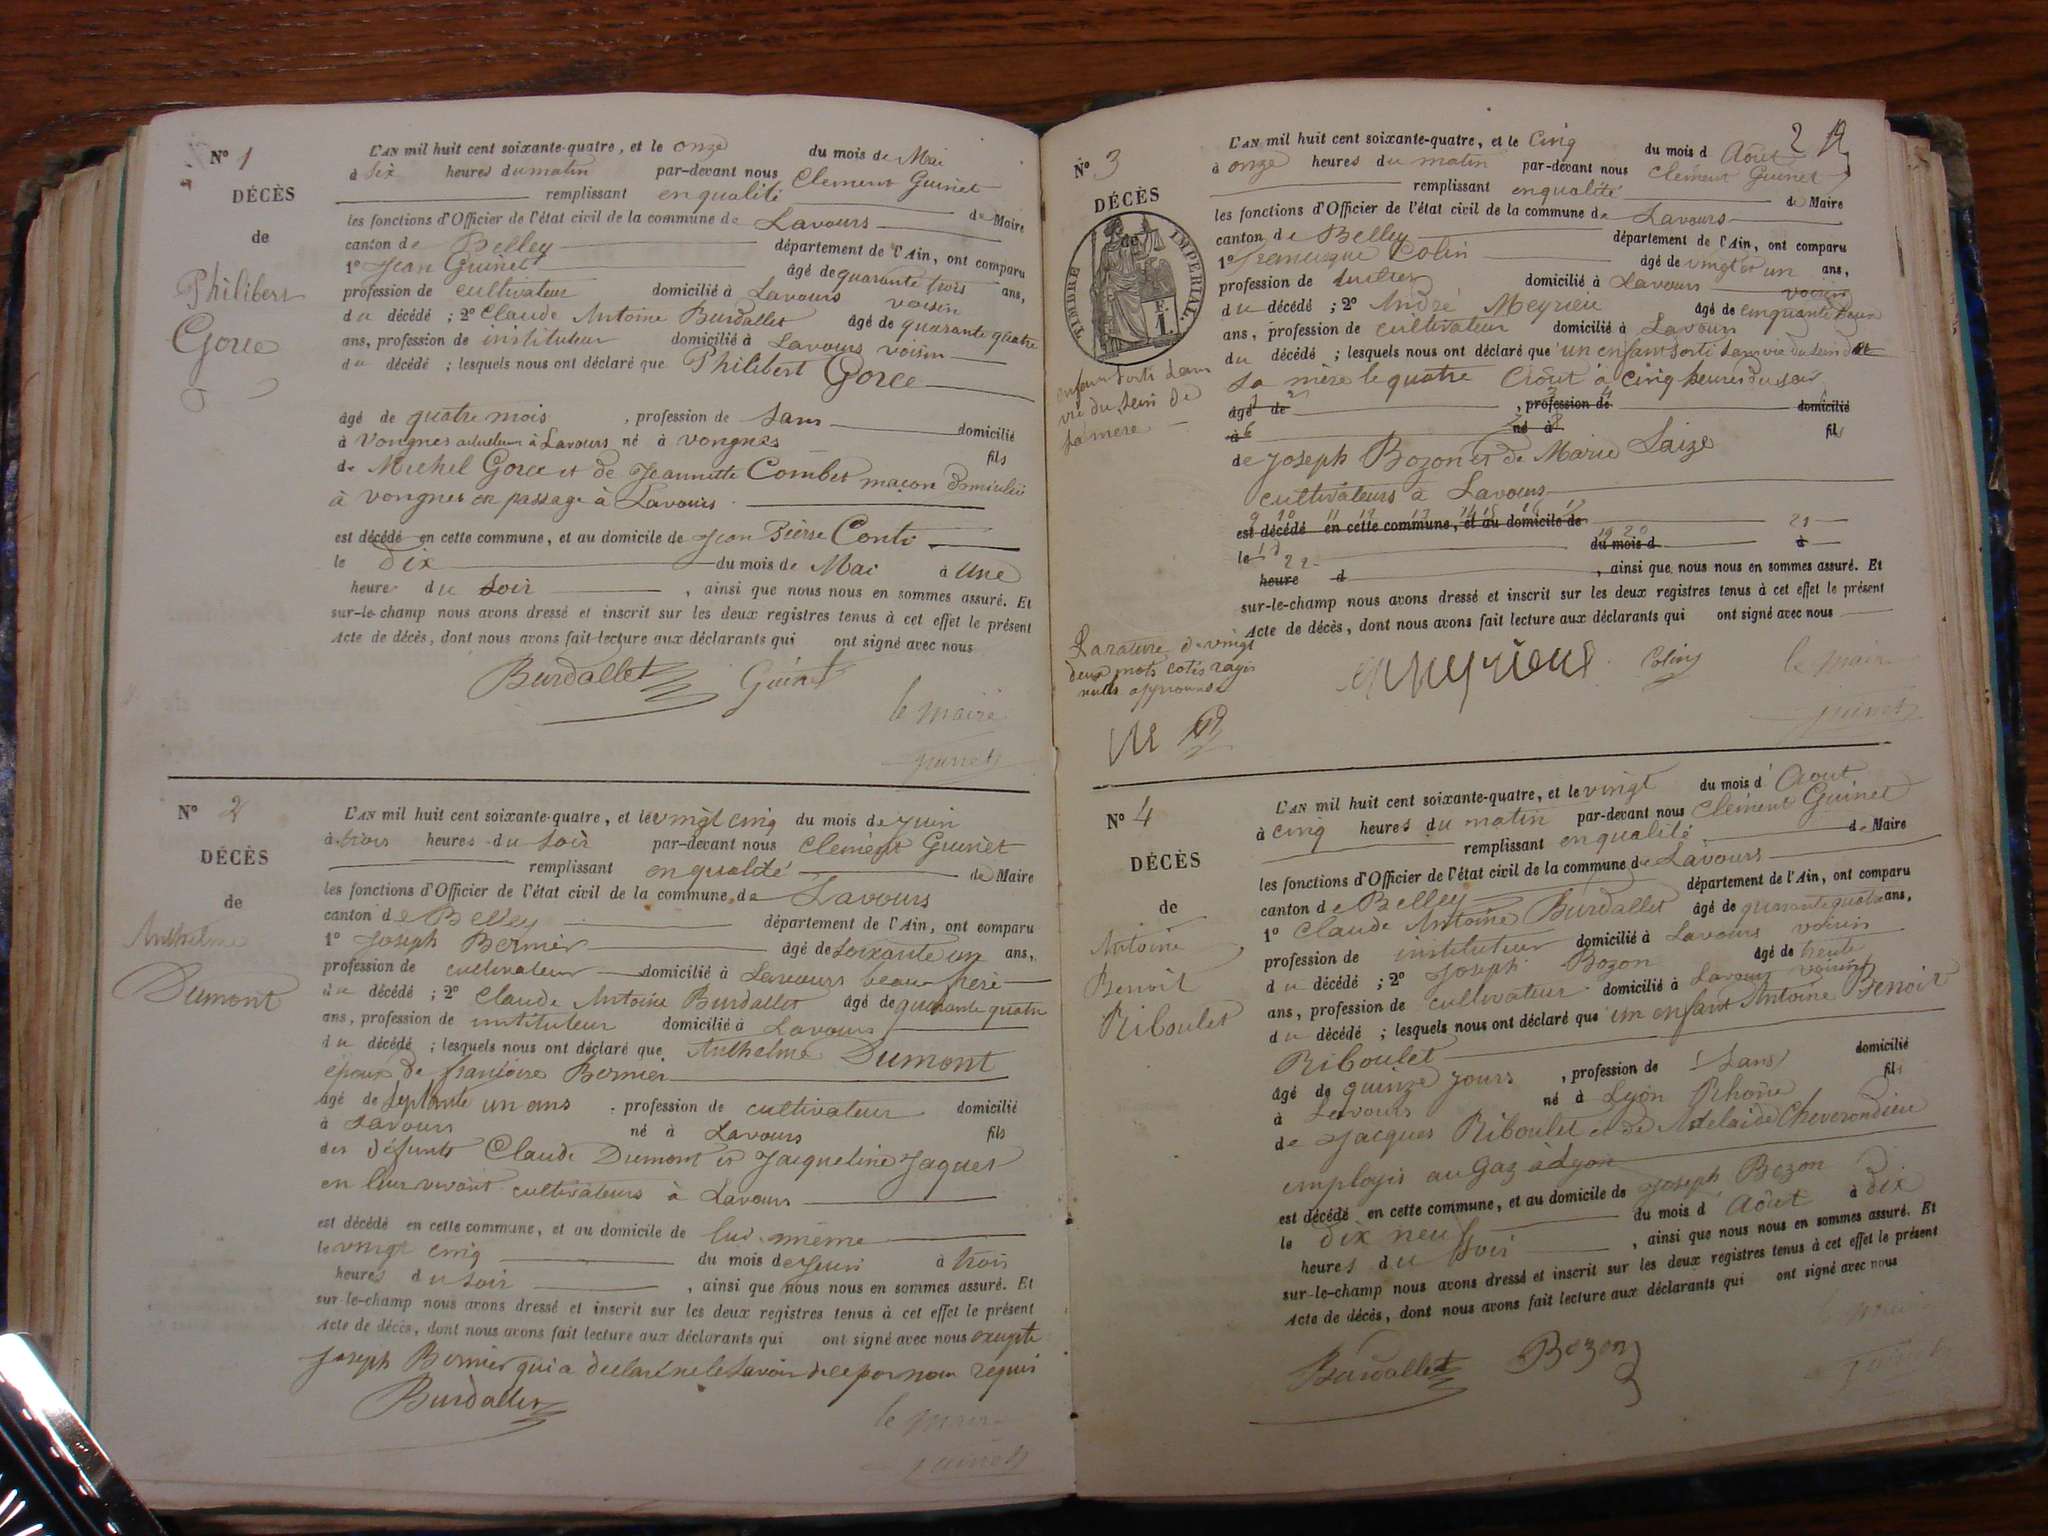 N° 1
DÉCÈS
de
Philibert
Goree
L'AN mil huit cent soixante-quatre, et le onze du mois de Mai
à six heures du matin par-devant nous Clément Guinet
remplissant en qualité de Maire
les fonctions d'Officier de l'état civil de la commune de Lavours
canton de Belley département de l'Ain, ont comparu
1° Jean Guinet âgé de quarante trois ans,
profession de cultivateur domicilié à Lavours voisin
du décédé ; 2° Claude Antoine Burdallet âgé de quarante quatre
ans, profession de instituteur domicilié à Lavours voisin
du décédé ; lesquels nous ont déclaré que Philibert Goree
âgé de quatre mois, profession de sans domicilié
à Vongnes à Lavours né à Vongnes fils
de Michel Goree et de Jeannette Combet maçon domicilié
à Vongnes en passage à Lavours
est décédé en cette commune, et au domicile de Jean Pierre Conti
le Dix du mois de Mai à Une
heure du Soir, ainsi que nous nous en sommes assuré. Et
sur-le-champ nous avons dressé et inscrit sur les deux registres tenus à cet effet le présent
Acte de décès, dont nous avons fait lecture aux déclarants qui ont signé avec nous
Burdallet Guinet
le maire
guinet
N° 2
DÉCÈS
de
Anthelme
Dumont
L'AN mil huit cent soixante-quatre, et le vingt cinq du mois de juin
à trois heures du soir par-devant nous Clément Guinet
remplissant en qualité de Maire
les fonctions d'Officier de l'état civil de la commune de Lavours
canton de Belley département de l'Ain, ont comparu
1° Joseph Bernier âgé de soixante un ans,
profession de cultivateur domicilié à Lavours beau frère
du décédé ; 2° Claude Antoine Burdallet âgé de quarante quatre
ans, profession de instituteur domicilié à Lavours
du décédé ; lesquels nous ont déclaré que Anthelme Dumont
époux de françoise Bernier
âgé de septante un ans, profession de cultivateur domicilié
à Lavours né à Lavours fils
des défunts Claude Dumont et Jacqueline Jaques
en leur vivant cultivateurs à Lavours
est décédé en cette commune, et au domicile de lui même
le vingt cinq du mois de juin à trois
heures du soir, ainsi que nous nous en sommes assuré. Et
sur-le-champ nous avons dressé et inscrit sur les deux registres tenus à cet effet le présent
Acte de décès, dont nous avons fait lecture aux déclarants qui ont signé avec nous excepté
Joseph Bernier qui a déclaré ne le savoir de ce par nous requis
Burdallet
le maire
guinet
2
N° 3
DÉCÈS
de
TIMBRE IMPÉRIAL
F. 1.
enfant sorti sans
vie du sein de
sa mère
L'AN mil huit cent soixante-quatre, et le Cinq du mois d Août
à onze heures du matin par-devant nous Clément Guinet
remplissant en qualité de Maire
les fonctions d'Officier de l'état civil de la commune de Lavours
canton de Belley département de l'Ain, ont comparu
1° Francisque Colin âgé de vingt et un ans,
profession de domicilié à Lavours voisin
du décédé ; 2° André Meyrieu âgé de cinquante deux
ans, profession de cultivateur domicilié à Lavours
du décédé ; lesquels nous ont déclaré que un enfant sorti sans vie du sein de
sa mère le quatre Août à cinq heures du soir
âgé de, profession de domicilié
à né à fils
de Joseph Bozon et de Marie Laize
cultivateurs à Lavours
9 10 11 12 13 14 15 16 17
est décédé en cette commune, et au domicile de
19 20 21
le du mois d à
22
heure d, ainsi que nous nous en sommes assuré. Et
sur-le-champ nous avons dressé et inscrit sur les deux registres tenus à cet effet le présent
Acte de décès, dont nous avons fait lecture aux déclarants qui ont signé avec nous
La rature de vingt
deux mots cotés rayés
nuls approuvée
meyrieux Colin le maire
guinet
N° 4
DÉCÈS
de
Antoine
Benoit
Riboulet
L'AN mil huit cent soixante-quatre, et le vingt du mois d' Aout
à cinq heures du matin par-devant nous Clément Guinet
remplissant en qualité de Maire
les fonctions d'Officier de l'état civil de la commune de Lavours
canton de Belley département de l'Ain, ont comparu
1° Claude Antoine Burdallet âgé de quarante quatre ans,
profession de instituteur domicilié à Lavours voisin
du décédé ; 2° Joseph Bozon âgé de trente
ans, profession de cultivateur domicilié à Lavours voisin
du décédé ; lesquels nous ont déclaré que un enfant Antoine Benoit
Riboulet
âgé de quinze jours, profession de Sans domicilié
à Lavours né à Lyon Rhône fils
de Jacques Riboulet et de Adelaide Cheverondieu
employés au Gaz à Lyon
est décédé en cette commune, et au domicile de Joseph Bozon
le dix neuf du mois d' Août à dix
heures du soir, ainsi que nous nous en sommes assuré. Et
sur-le-champ nous avons dressé et inscrit sur les deux registres tenus à cet effet le présent
Acte de décès, dont nous avons fait lecture aux déclarants qui ont signé avec nous
le maire
Burdallet Bozon guinet